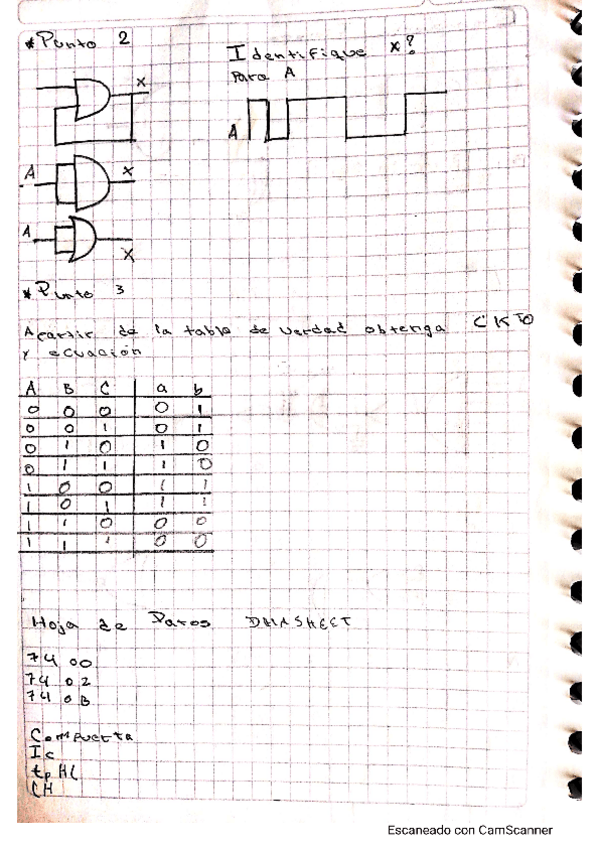 * Punto 2
Identifique x?
Para A
X
A
A X
A
X
* Punto 3
A partir de la tabla de verdad obtenga CKTO
y ecuación
A B C a b
0 0 0 0 1
0 0 1 0 1
0 1 0 1 0
0 1 1 1 0
1 0 0 1 1
1 0 1 1 1
1 1 0 0 0
1 1 1 0 0
Hoja de Datos DATASHEET
74 00
74 02
74 08
Compuerta
Ic
tpHL
Escaneado con CamScanner